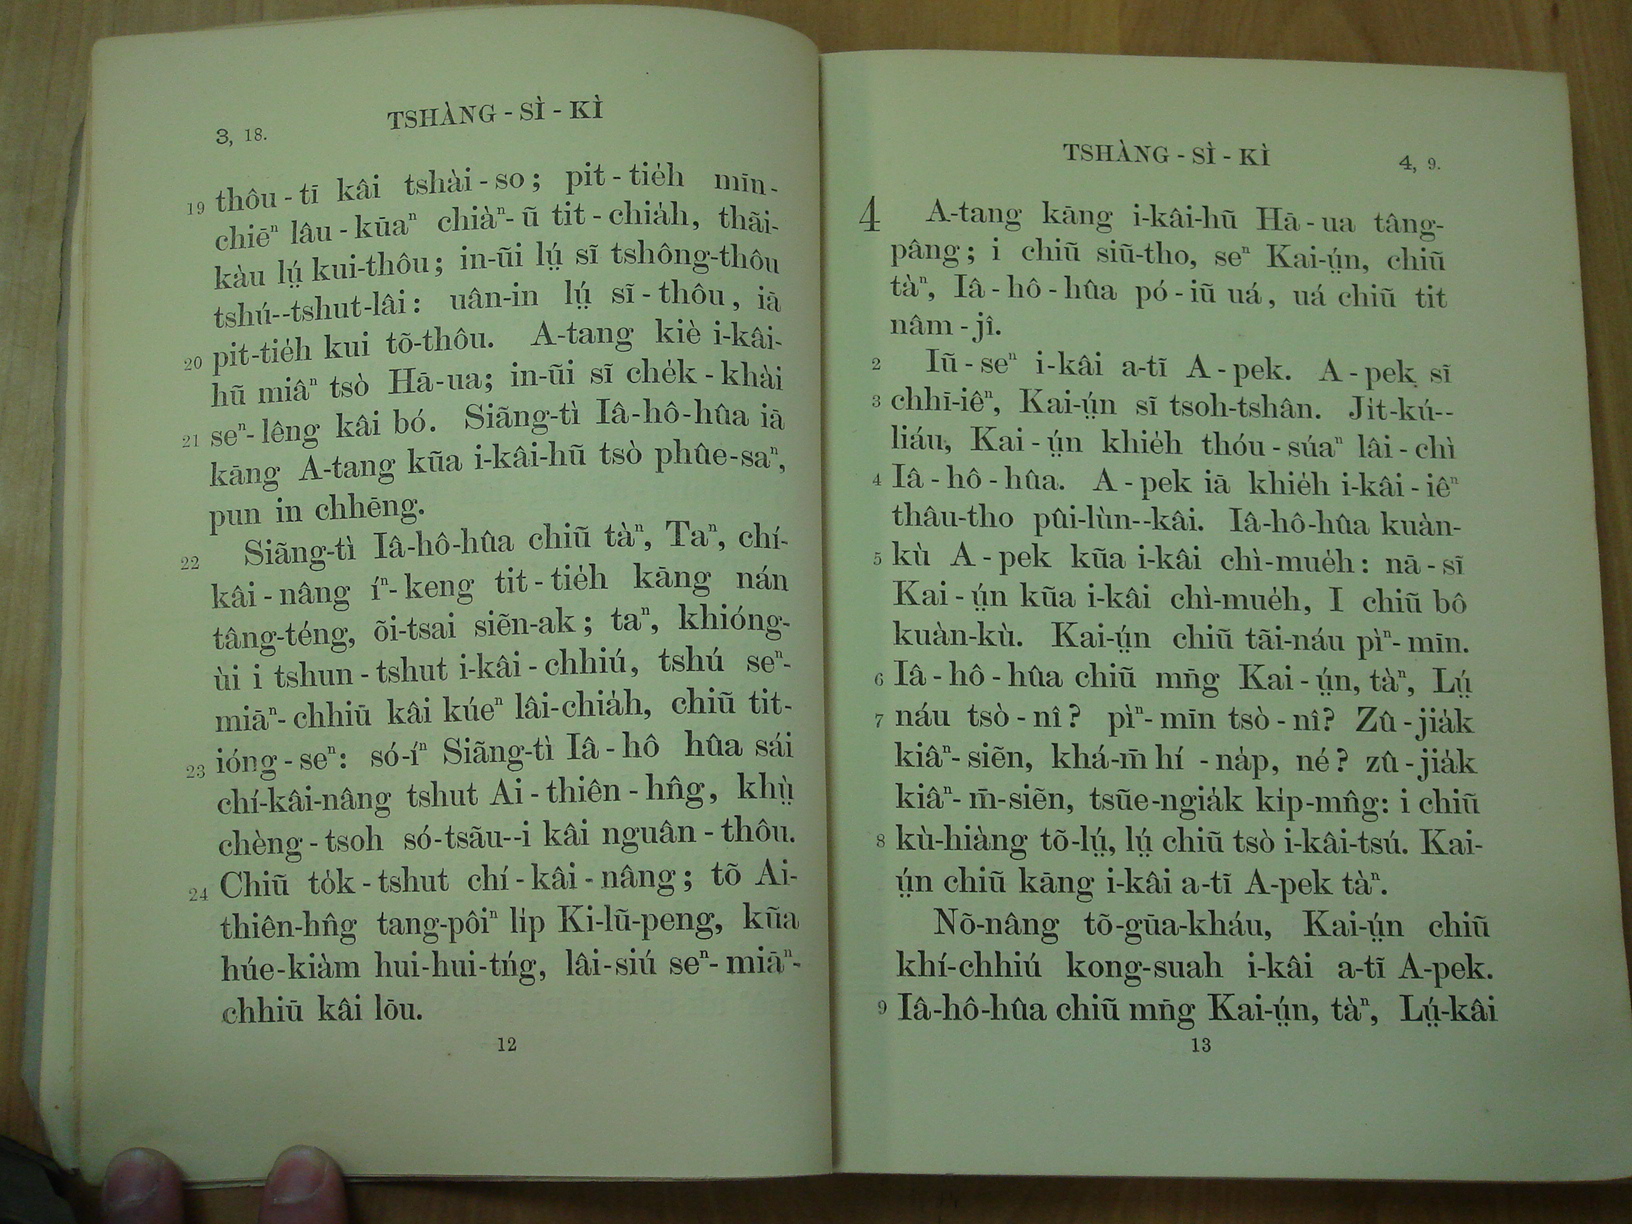 3, 18.
TSHÀNG - SÌ - KÌ
19 thôu - tī kâi tshài - so; pit - tie̍h mīn-
chiēⁿ lâu - kūaⁿ chiàⁿ- ũ tit - chia̍h, thãi-
kàu lṳ́ kui-thôu; in-ũi lṳ́ sĩ tshông-thôu
tshú--tshut-lâi: uân-in lṳ́ sĩ - thôu, iā
20 pit-tie̍h kui tõ-thôu. A-tang kiè i-kâi-
hũ miâⁿ tsò Hā-ua; in-ũi sĩ che̍k - khài
21 seⁿ- lêng kâi bó. Siãng-tì Iâ-hô-hûa iā
kāng A-tang kũa i-kâi-hũ tsò phûe-saⁿ,
pun in chhēng.
22 Siãng-tì Iâ-hô-hûa chiũ tàⁿ, Taⁿ, chí-
kâi - nâng íⁿ- keng tit - tie̍h kāng nán
tâng-téng, õi-tsai siẽn-ak; taⁿ, khióng-
ùi i tshun - tshut i-kâi - chhiú, tshú seⁿ-
miāⁿ- chhiū kâi kúeⁿ lâi-chia̍h, chiũ tit-
23 ióng - seⁿ: só-íⁿ Siãng-tì Iâ - hô hûa sái
chí-kâi-nâng tshut Ai - thiên - hn̂g, khṳ̀
chèng - tsoh só-tsãu--i kâi nguân - thôu.
24 Chiũ to̍k - tshut chí - kâi - nâng; tõ Ai-
thiên-hn̂g tang-pôiⁿ li̍p Ki-lũ-peng, kũa
húe-kiàm hui-hui-tńg, lâi-siú seⁿ- miāⁿ-
chhiū kâi lōu.
12
TSHÀNG - SÌ - KÌ
4, 9.
4 A-tang kāng i-kâi-hũ Hā - ua tâng-
pâng; i chiũ siũ-tho, seⁿ Kai-ṳ́n, chiũ
tàⁿ, Iâ - hô - hûa pó - iũ uá, uá chiũ tit
nâm - jî.
2 Iũ - seⁿ i-kâi a-tĩ A - pek. A - pek sĩ
3 chhī-iêⁿ, Kai-ṳ́n sĩ tsoh-tshân. Ji̍t-kú--
liáu, Kai - ṳ́n khie̍h thóu - súaⁿ lâi - chì
4 Iâ - hô - hûa. A - pek iā khie̍h i-kâi - iêⁿ
thâu-tho pûi-lùn--kâi. Iâ-hô-hûa kuàn-
5 kù A - pek kũa i-kâi chì-mue̍h: nā - sĩ
Kai - ṳ́n kũa i-kâi chì-mue̍h, I chiũ bô
kuàn-kù. Kai-ṳ́n chiũ tāi-náu pìⁿ- mīn.
6 Iâ - hô - hûa chiũ mn̄g Kai - ṳ́n, tàⁿ, Lṳ́
7 náu tsò - nî? pìⁿ- mīn tsò - nî? Zû - jia̍k
kiâⁿ- siẽn, khá-m̄ hí - na̍p, né? zû - jia̍k
kiâⁿ- m̄-siẽn, tsũe-ngia̍k ki̍p-mn̂g: i chiũ
8 kù-hiàng tõ-lṳ́, lṳ́ chiũ tsò i-kâi-tsú. Kai-
ṳ́n chiũ kāng i-kâi a-tĩ A-pek tàⁿ.
Nõ-nâng tõ-gūa-kháu, Kai-ṳ́n chiũ
khí-chhiú kong-suah i-kâi a-tĩ A-pek.
9 Iâ-hô-hûa chiũ mn̄g Kai-ṳ́n, tàⁿ, Lṳ́-kâi
13